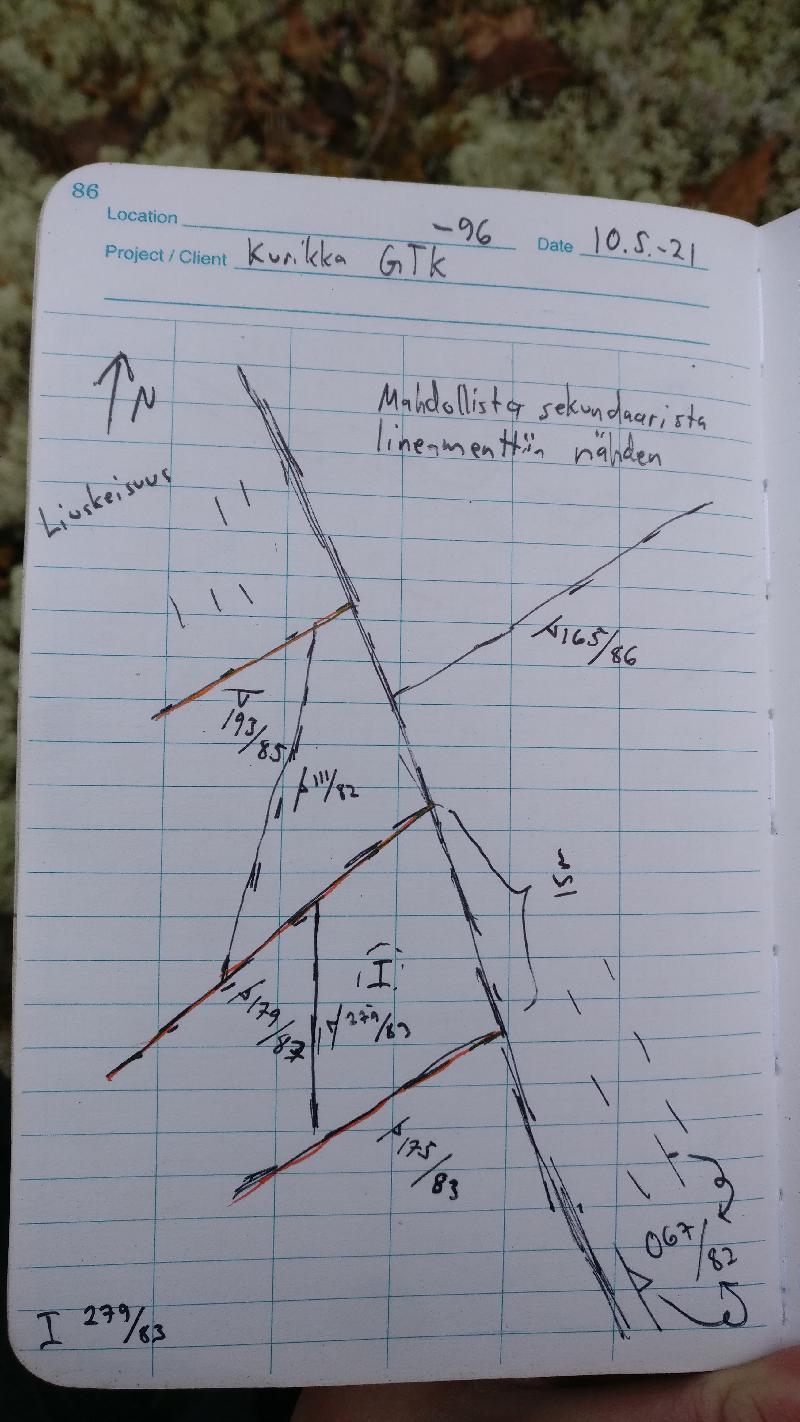 86
Location -96 Date 10.5.-21
Project / Client Kurikka GTK
N
Mahdollista sekundaarista
lineamenttiin nähden
Liuskeisuus
165/86
193/85
111/82
I
179/87
279/83
175/83
067/82
I 279/83